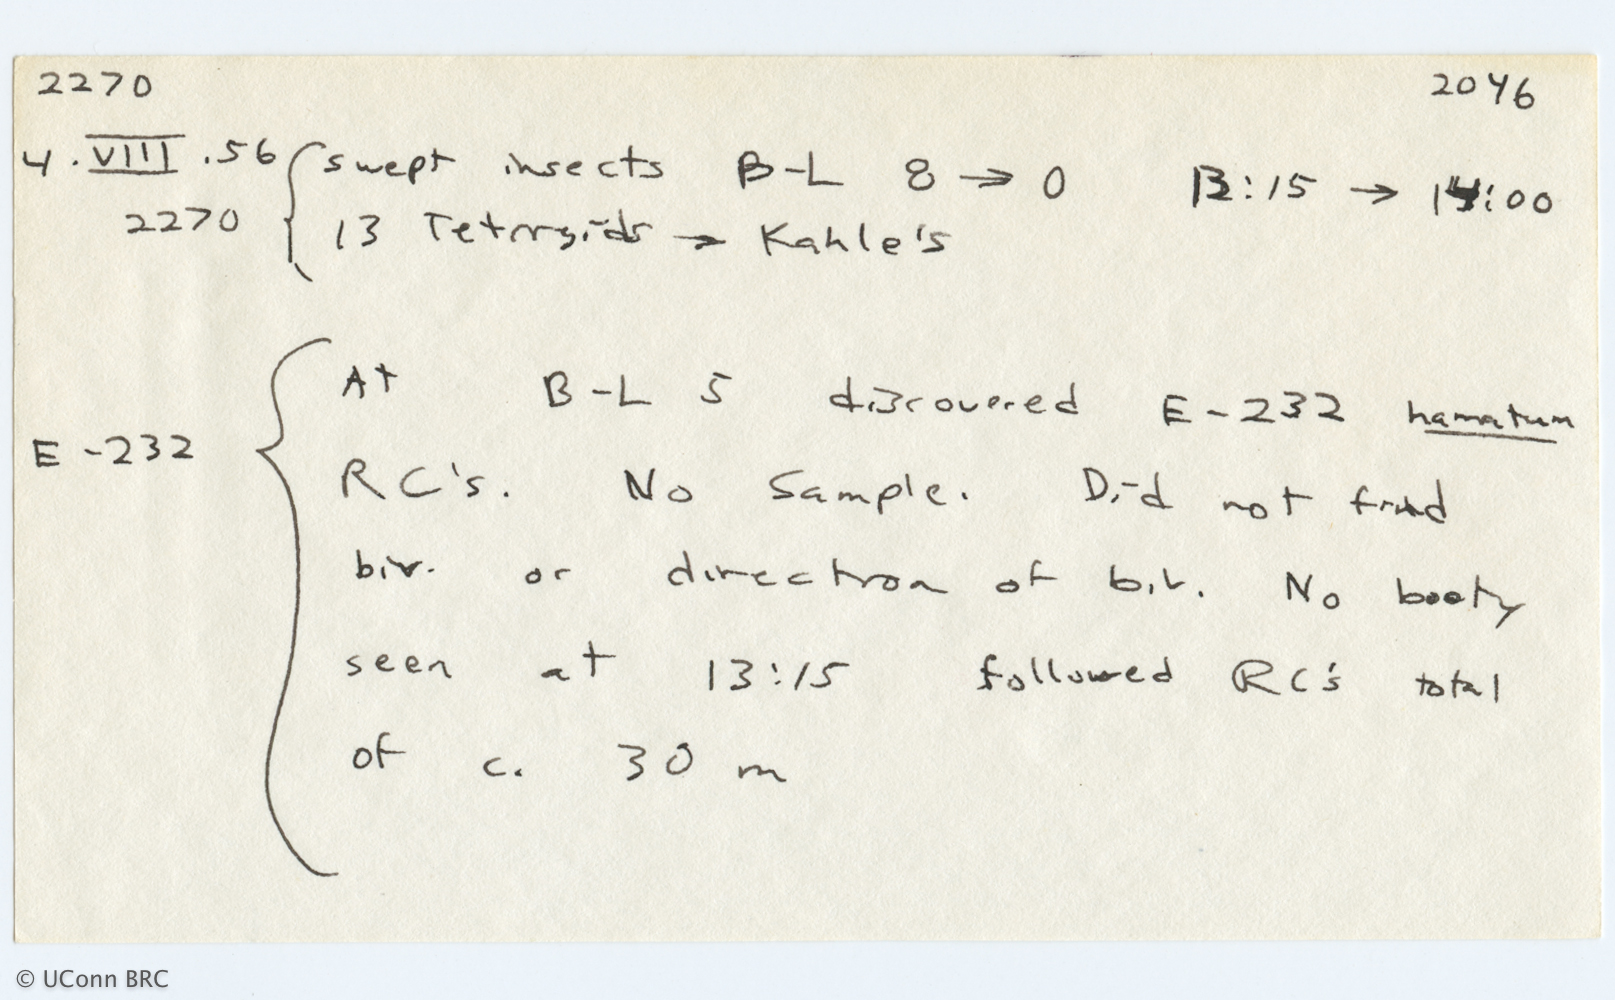 2270 2046
4.VIII.56 swept insects B-L 8 → 0 13:15 → 14:00
2270 13 Tetrigids → Kahle's
At B-L 5 discovered E-232 hamatum
E-232
RC's. No Sample. Did not find
biv. or direction of biv. No booty
seen at 13:15 followed RC's total
of c. 30 m
© UConn BRC